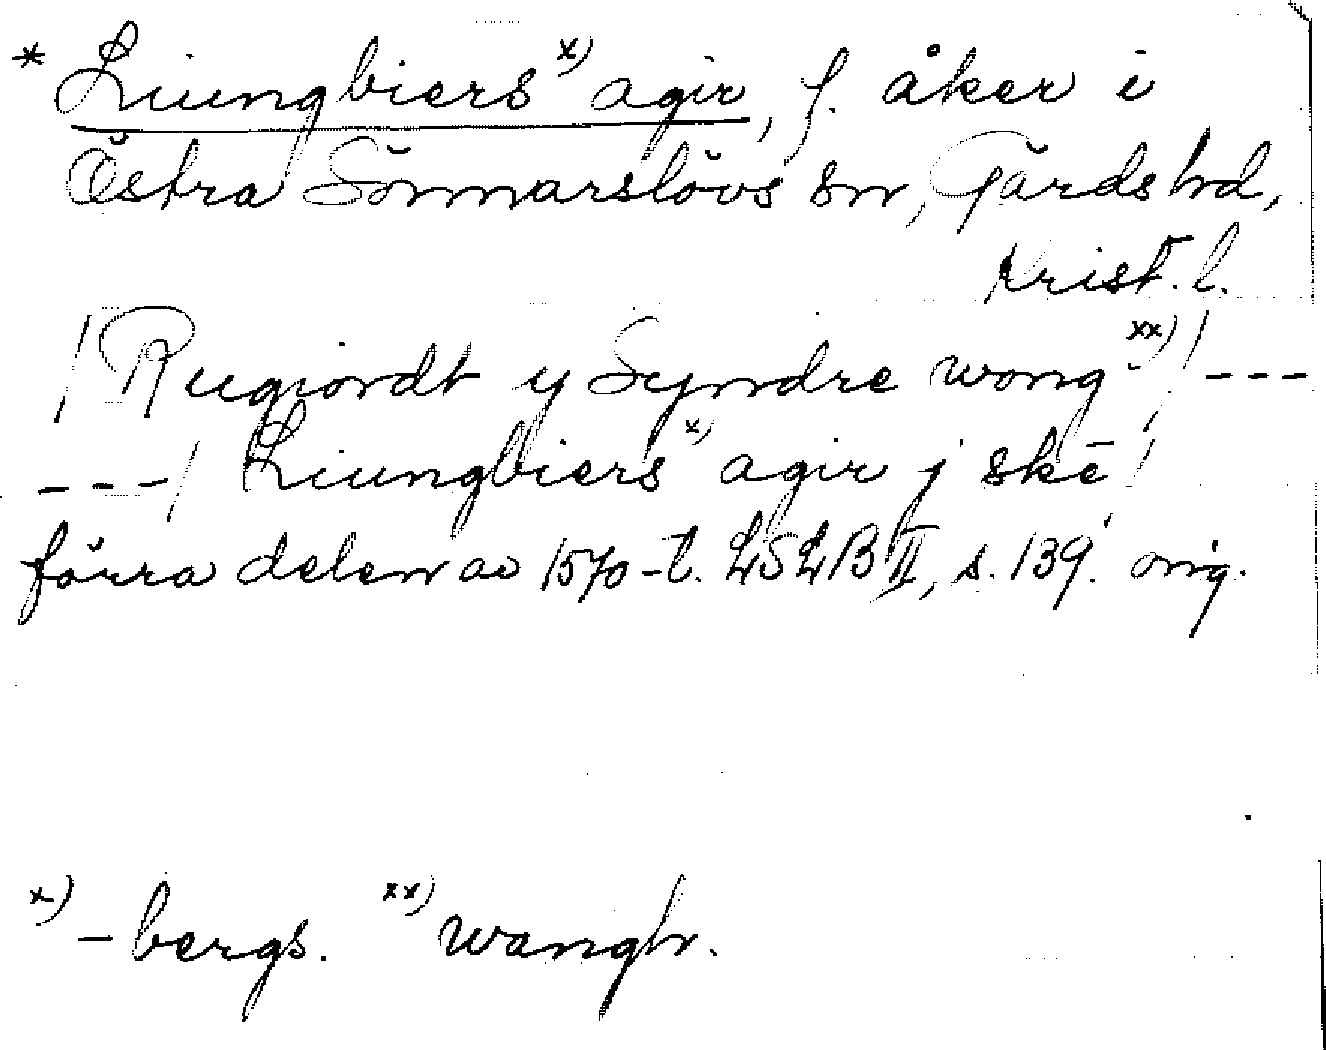 * Liungbiers x) agir, f. åker i
Östra Sönnarslövs sn, Gärds hd,
Krist. l.
/Rugiordt y Syndre wong xx)/ ---
---/ Liungbiers x) agir j skē/
förra delen av 1570-t. LSLB II, s. 139. orig.
x) -bergs. xx) wangh.